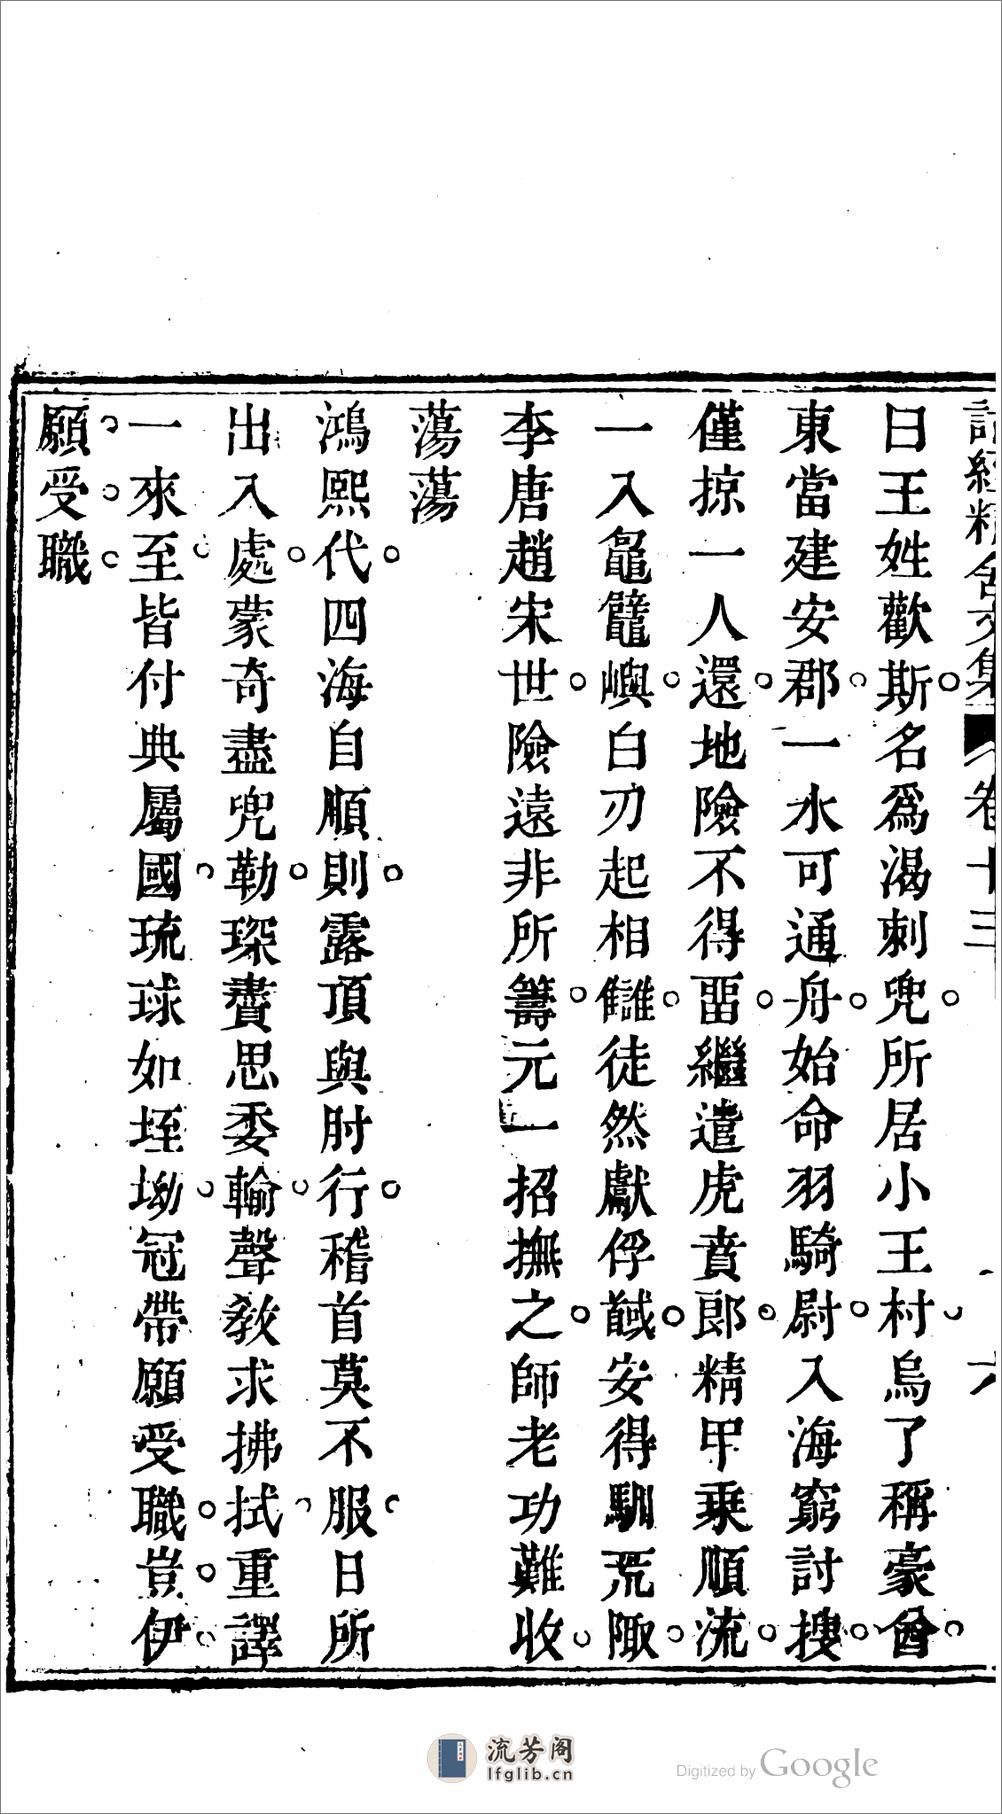 詁經精舍文集 卷十三 六
曰王姓歡斯名爲渴刺兜所居小王村烏了稱豪酋
東當建安郡一水可通舟始命羽騎尉入海窮討搜
僅掠一人還地險不得畱繼遣虎賁郎精甲乘順流
一入鼂鼊嶼白刃起相讎徒然獻俘馘安得馴荒陬
李唐趙宋世險遠非所籌元一招撫之師老功難收
蕩蕩
鴻熙代四海自順則露頂與肘行稽首莫不服日所
出入處蒙奇盡兜勒琛賮思委輸聲教求拂拭重譯
一來至皆付典屬國琉球如垤坳冠帶願受職豈伊
願受職
流芳阁
lfglib.cn
Digitized by Google